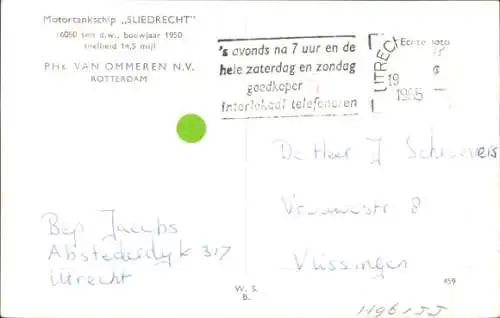 Motortankschip „SLIEDRECHT”
16050 ton d.w., bouwjaar 1950
snelheid 14,5 mijl
PHS. VAN OMMEREN N.V.
ROTTERDAM
's avonds na 7 uur en de
hele zaterdag en zondag
goedkoper
interlokaal telefoneren
UTRECHT
19
1965
Echte foto
De Heer J Schrievers
8
Vlissingen
Bep Jacobs
Abstederdyk 317
Utrecht
W. S.
B.
459